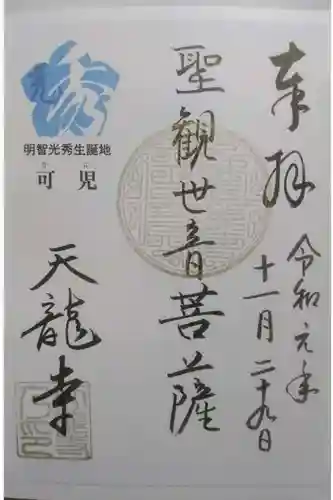 奉拝
令和元年
十一月二十九日
聖観世音菩薩
光秀
明智光秀生誕地
可児
かに
天龍寺